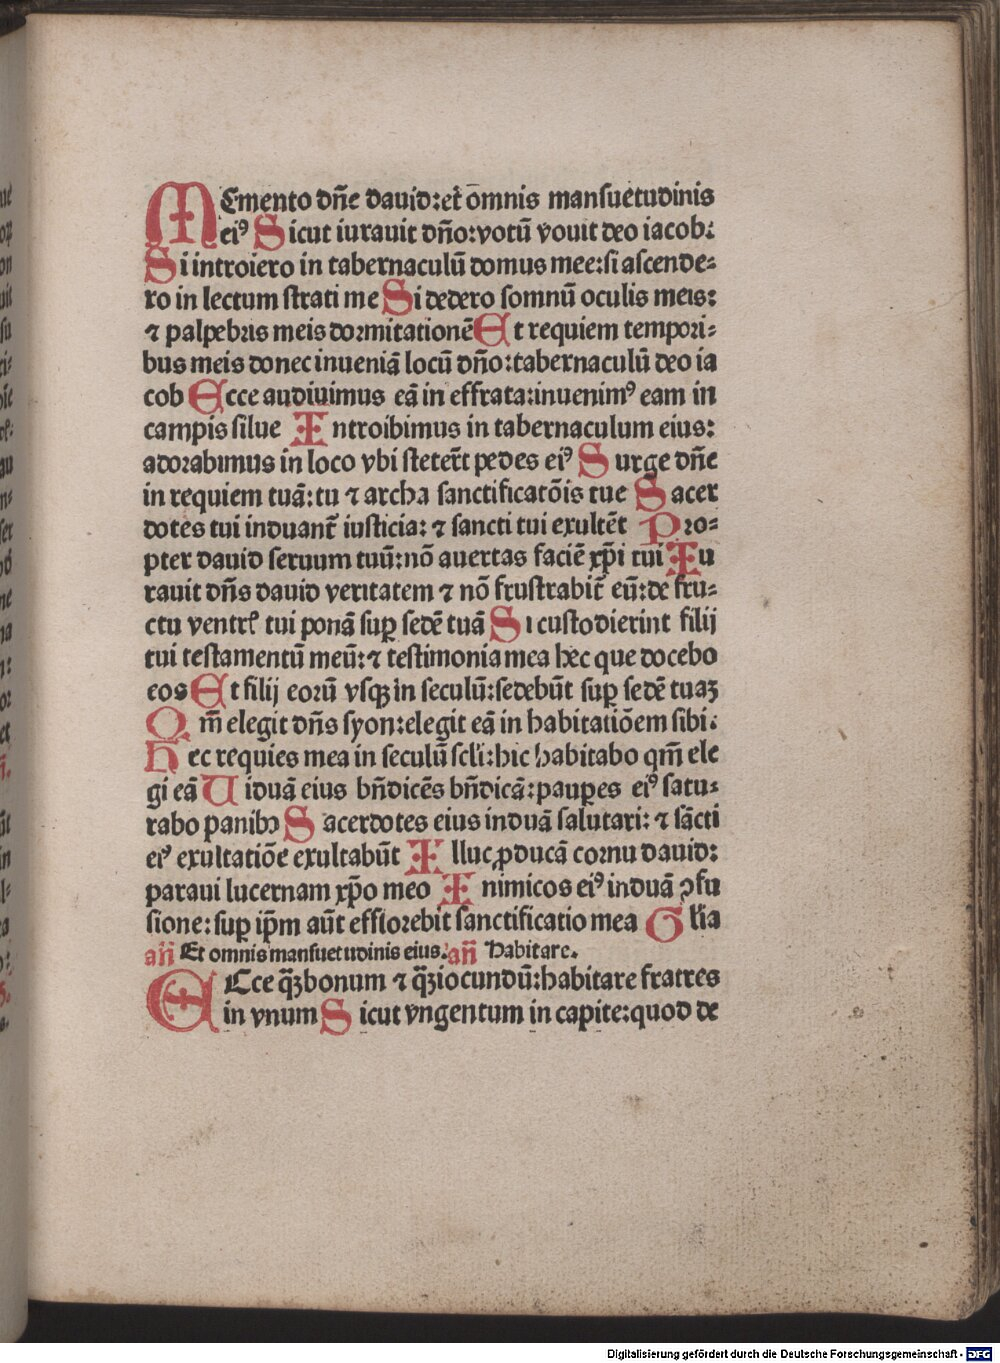 MEmento dñe dauid:et̄ om̄nis mansuetudinis
eiꝰ Sicut iurauit dño:votū vouit deo iacob:
Si introiero in tabernaculū domus mee:si ascende⸗
ro in lectum strati me Si dedero somnū oculis meis:
⁊ palpebris meis dormitationē Et requiem tempori⸗
bus meis donec inueniā locū dño:tabernaculū deo ia
cob Ecce audiuimus eā in effrata:inuenimꝰ eam in
campis silue Introibimus in tabernaculum eius:
adorabimus in loco vbi steter̄t pedes eiꝰ Surge dñe
in requiem tuā:tu ⁊ archa sanctificatōis tue Sacer
dotes tui induant̄ iusticia: ⁊ sancti tui exultēt Pro⸗
pter dauid seruum tuū:nō auertas faciē xp̄i tui Iu
rauit dñs dauid veritatem ⁊ nō frustrabit̄ eū:de fru⸗
ctu ventrꝭ tui ponā suꝑ sedē tuā Si custodierint filij
tui testamentū meū:⁊ testimonia mea hec que docebo
eos Et filij eorū vsqꝫ in seculū:sedebūt suꝑ sedē tuaꝫ
Qm̄ elegit dñs syon:elegit eā in habitatiōem sibi:
Hec requies mea in seculū scl̄i:hic habitabo qm̄ ele
gi eā Uiduā eius bn̄dicēs bn̄dicā:pauꝑes eiꝰ satu⸗
rabo panibꝰ Sacerdotes eius induā salutari: ⁊ sācti
eiꝰ exultatiōe exultabūt Illuc ꝓducā cornu dauid:
paraui lucernam xp̄o meo Inimicos eiꝰ induā ꝯfu
sione:suꝑ ip̄m aūt efflorebit sanctificatio mea Gl̄ia
añ Et omnis mansuetudinis eius. añ Habitare.
ECce q̄ꝫ bonum ⁊ q̄ꝫ iocundū:habitare fratres
in vnum Sicut vngentum in capite:quod de
Digitalisierung gefördert durch die Deutsche Forschungsgemeinschaft - DFG